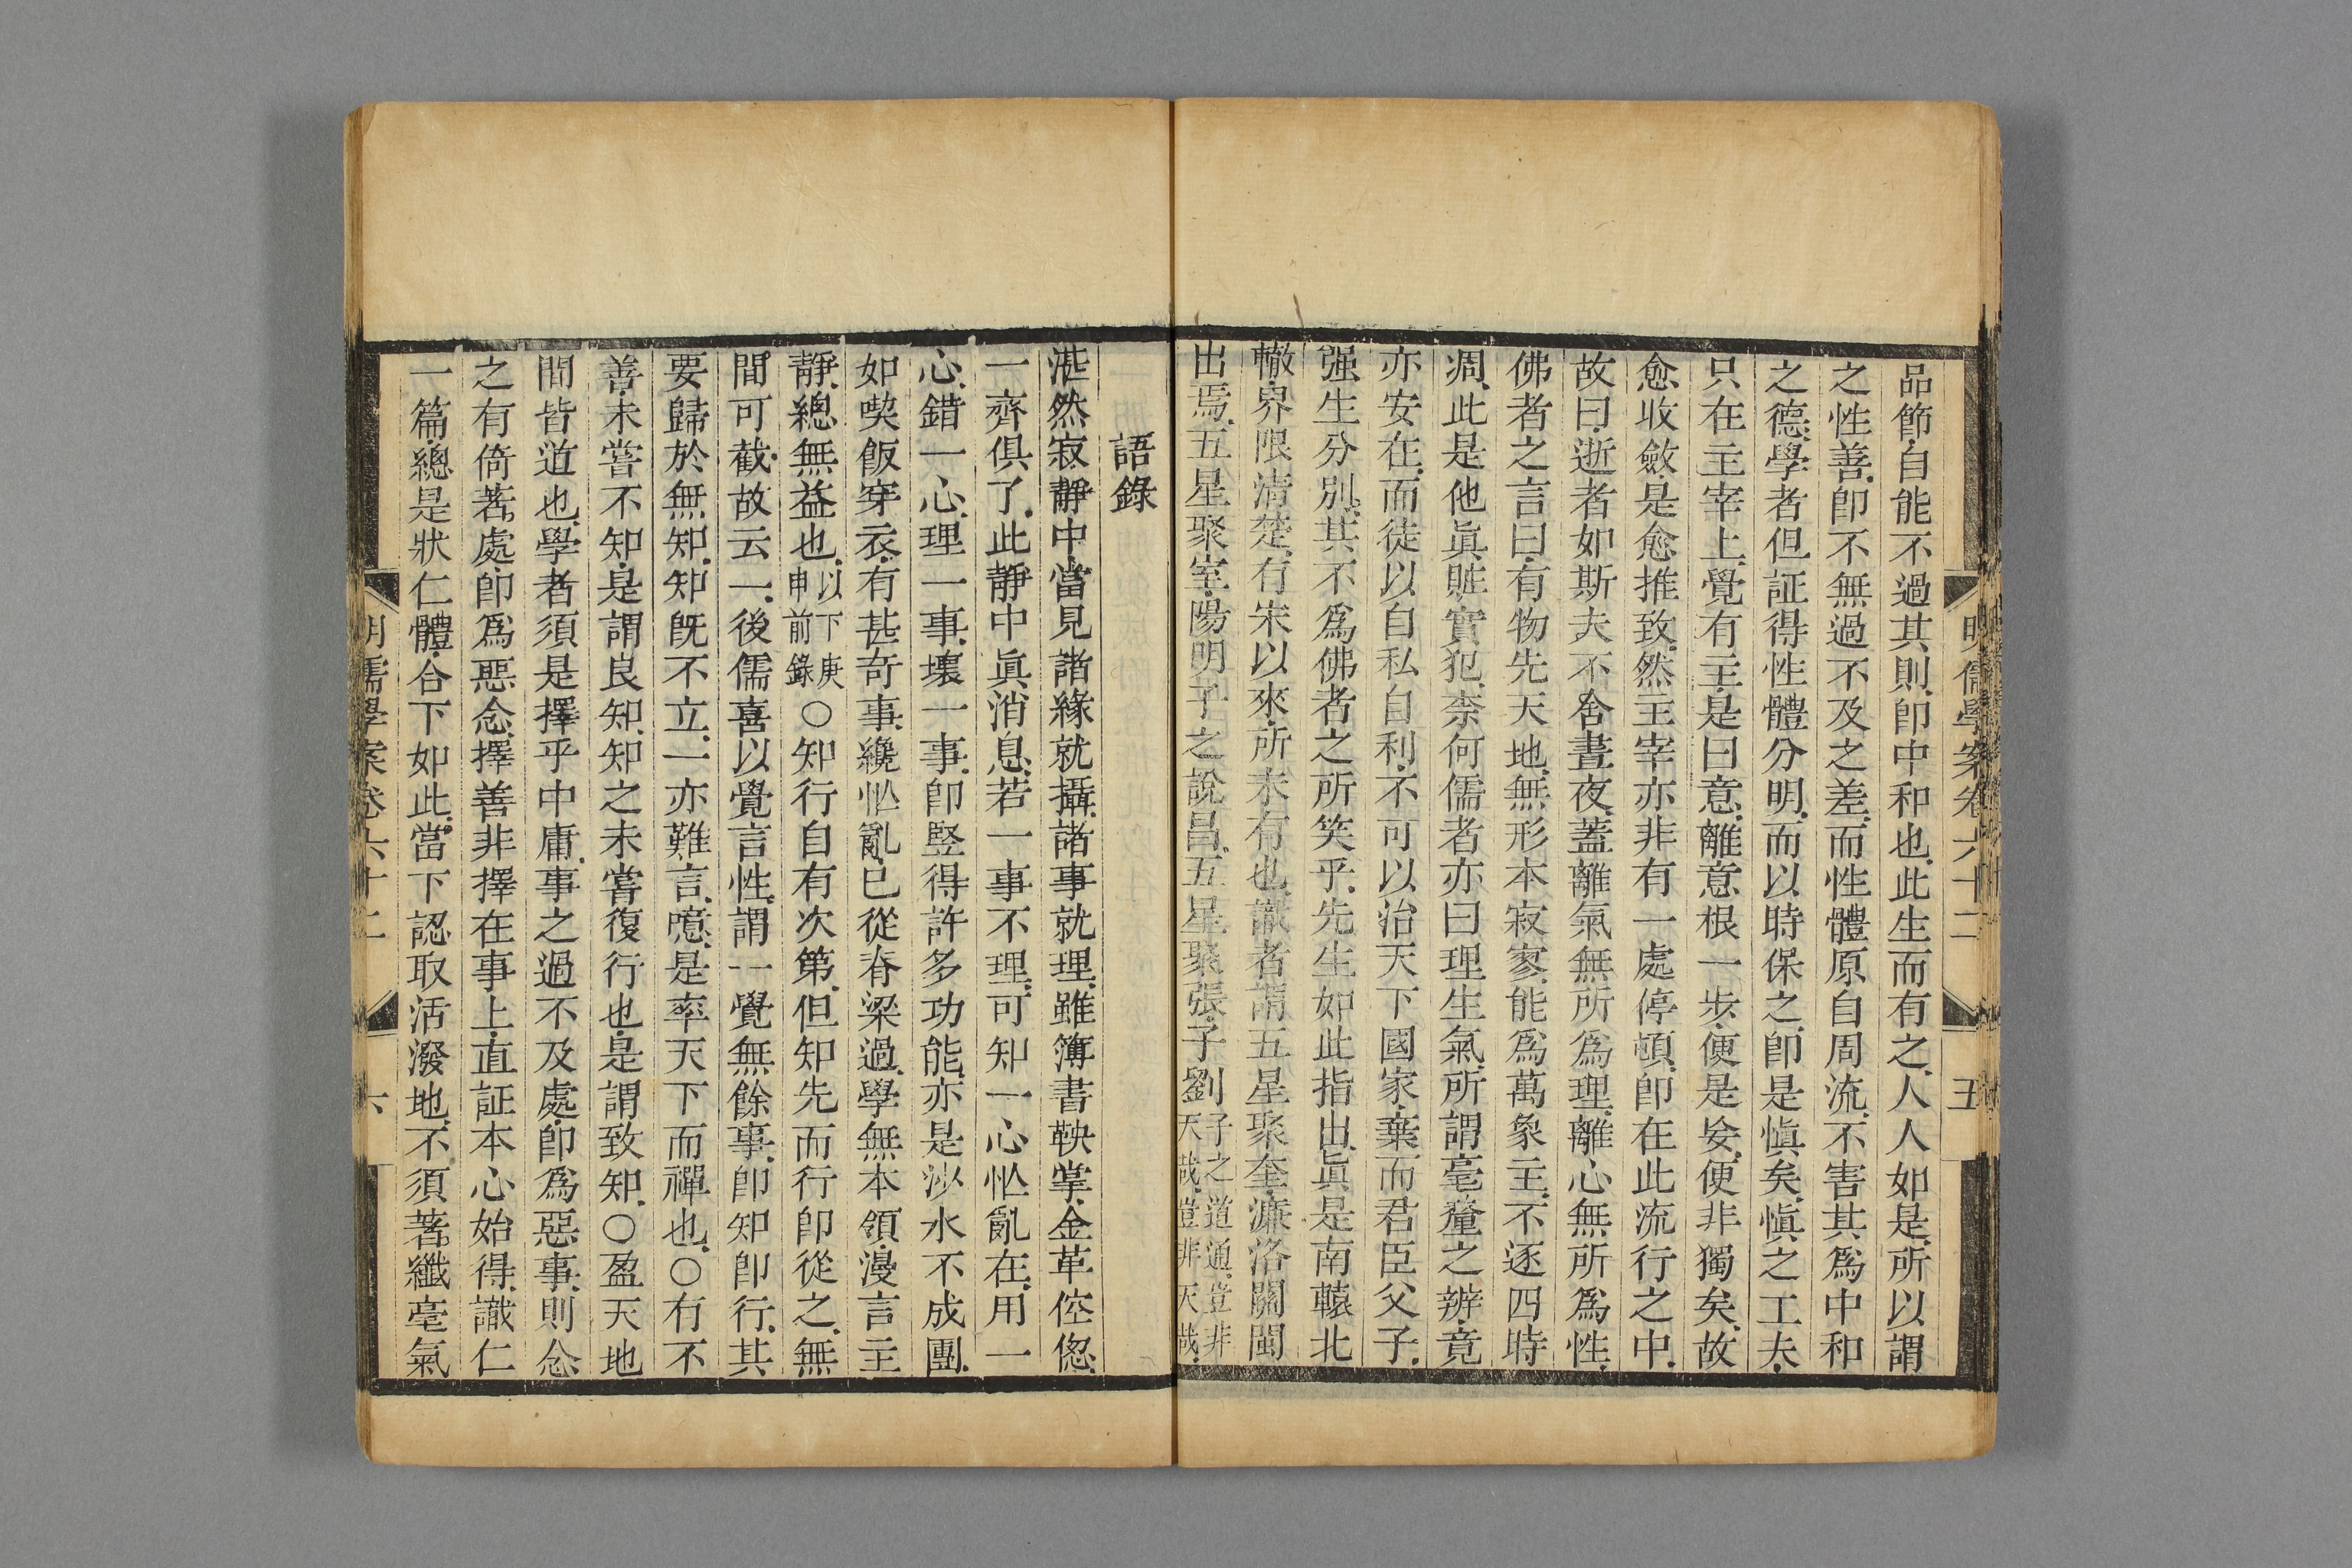 明儒學案卷六十二 五
品節自能不過其則即中和也此生而有之人人如是所以謂
之性善即不無過不及之差而性體原自周流不害其為中和
之德學者但証得性體分明而以時保之即是慎矣慎之工夫
只在主宰上覺有主是曰意離意根一步便是妄便非獨矣故
愈收斂是愈推致然主宰亦非有一處停頓即在此流行之中
故曰逝者如斯夫不舍晝夜蓋離氣無所為理離心無所為性
佛者之言曰有物先天地無形本寂寥能為萬象主不逐四時
凋此是他眞贓實犯柰何儒者亦曰理生氣所謂毫釐之辨竟
亦安在而徒以自私自利不可以治天下國家棄而君臣父子
强生分別其不為佛者之所笑乎先生如此指出眞是南轅北
轍界限清楚有宋以來所未有也識者謂五星聚奎濂洛關閩
出焉五星聚室陽明子之說昌五星聚張子劉子之道通豈非天哉豈非天哉
語錄
湛然寂靜中當見諸緣就攝諸事就理雖簿書鞅掌金革倥傯
一齊俱了此靜中眞消息若一事不理可知一心忙亂在用一
心錯一心理一事壞一事即竪得許多功能亦是沙水不成團
如喫飯穿衣有甚奇事纔忙亂已從脊梁過學無本領漫言主
靜總無益也以下庚申前錄○知行自有次第但知先而行即從之無
間可截故云一後儒喜以覺言性謂一覺無餘事即知即行其
要歸於無知知既不立一亦難言噫是率天下而禪也○有不
善未嘗不知是謂良知知之未嘗復行也是謂致知○盈天地
間皆道也學者須是擇乎中庸事之過不及處即為惡事則念
之有倚著處即為惡念擇善非擇在事上直証本心始得識仁
一篇總是狀仁體合下如此當下認取活潑地不須著纖毫氣
明儒學案卷六十二 六